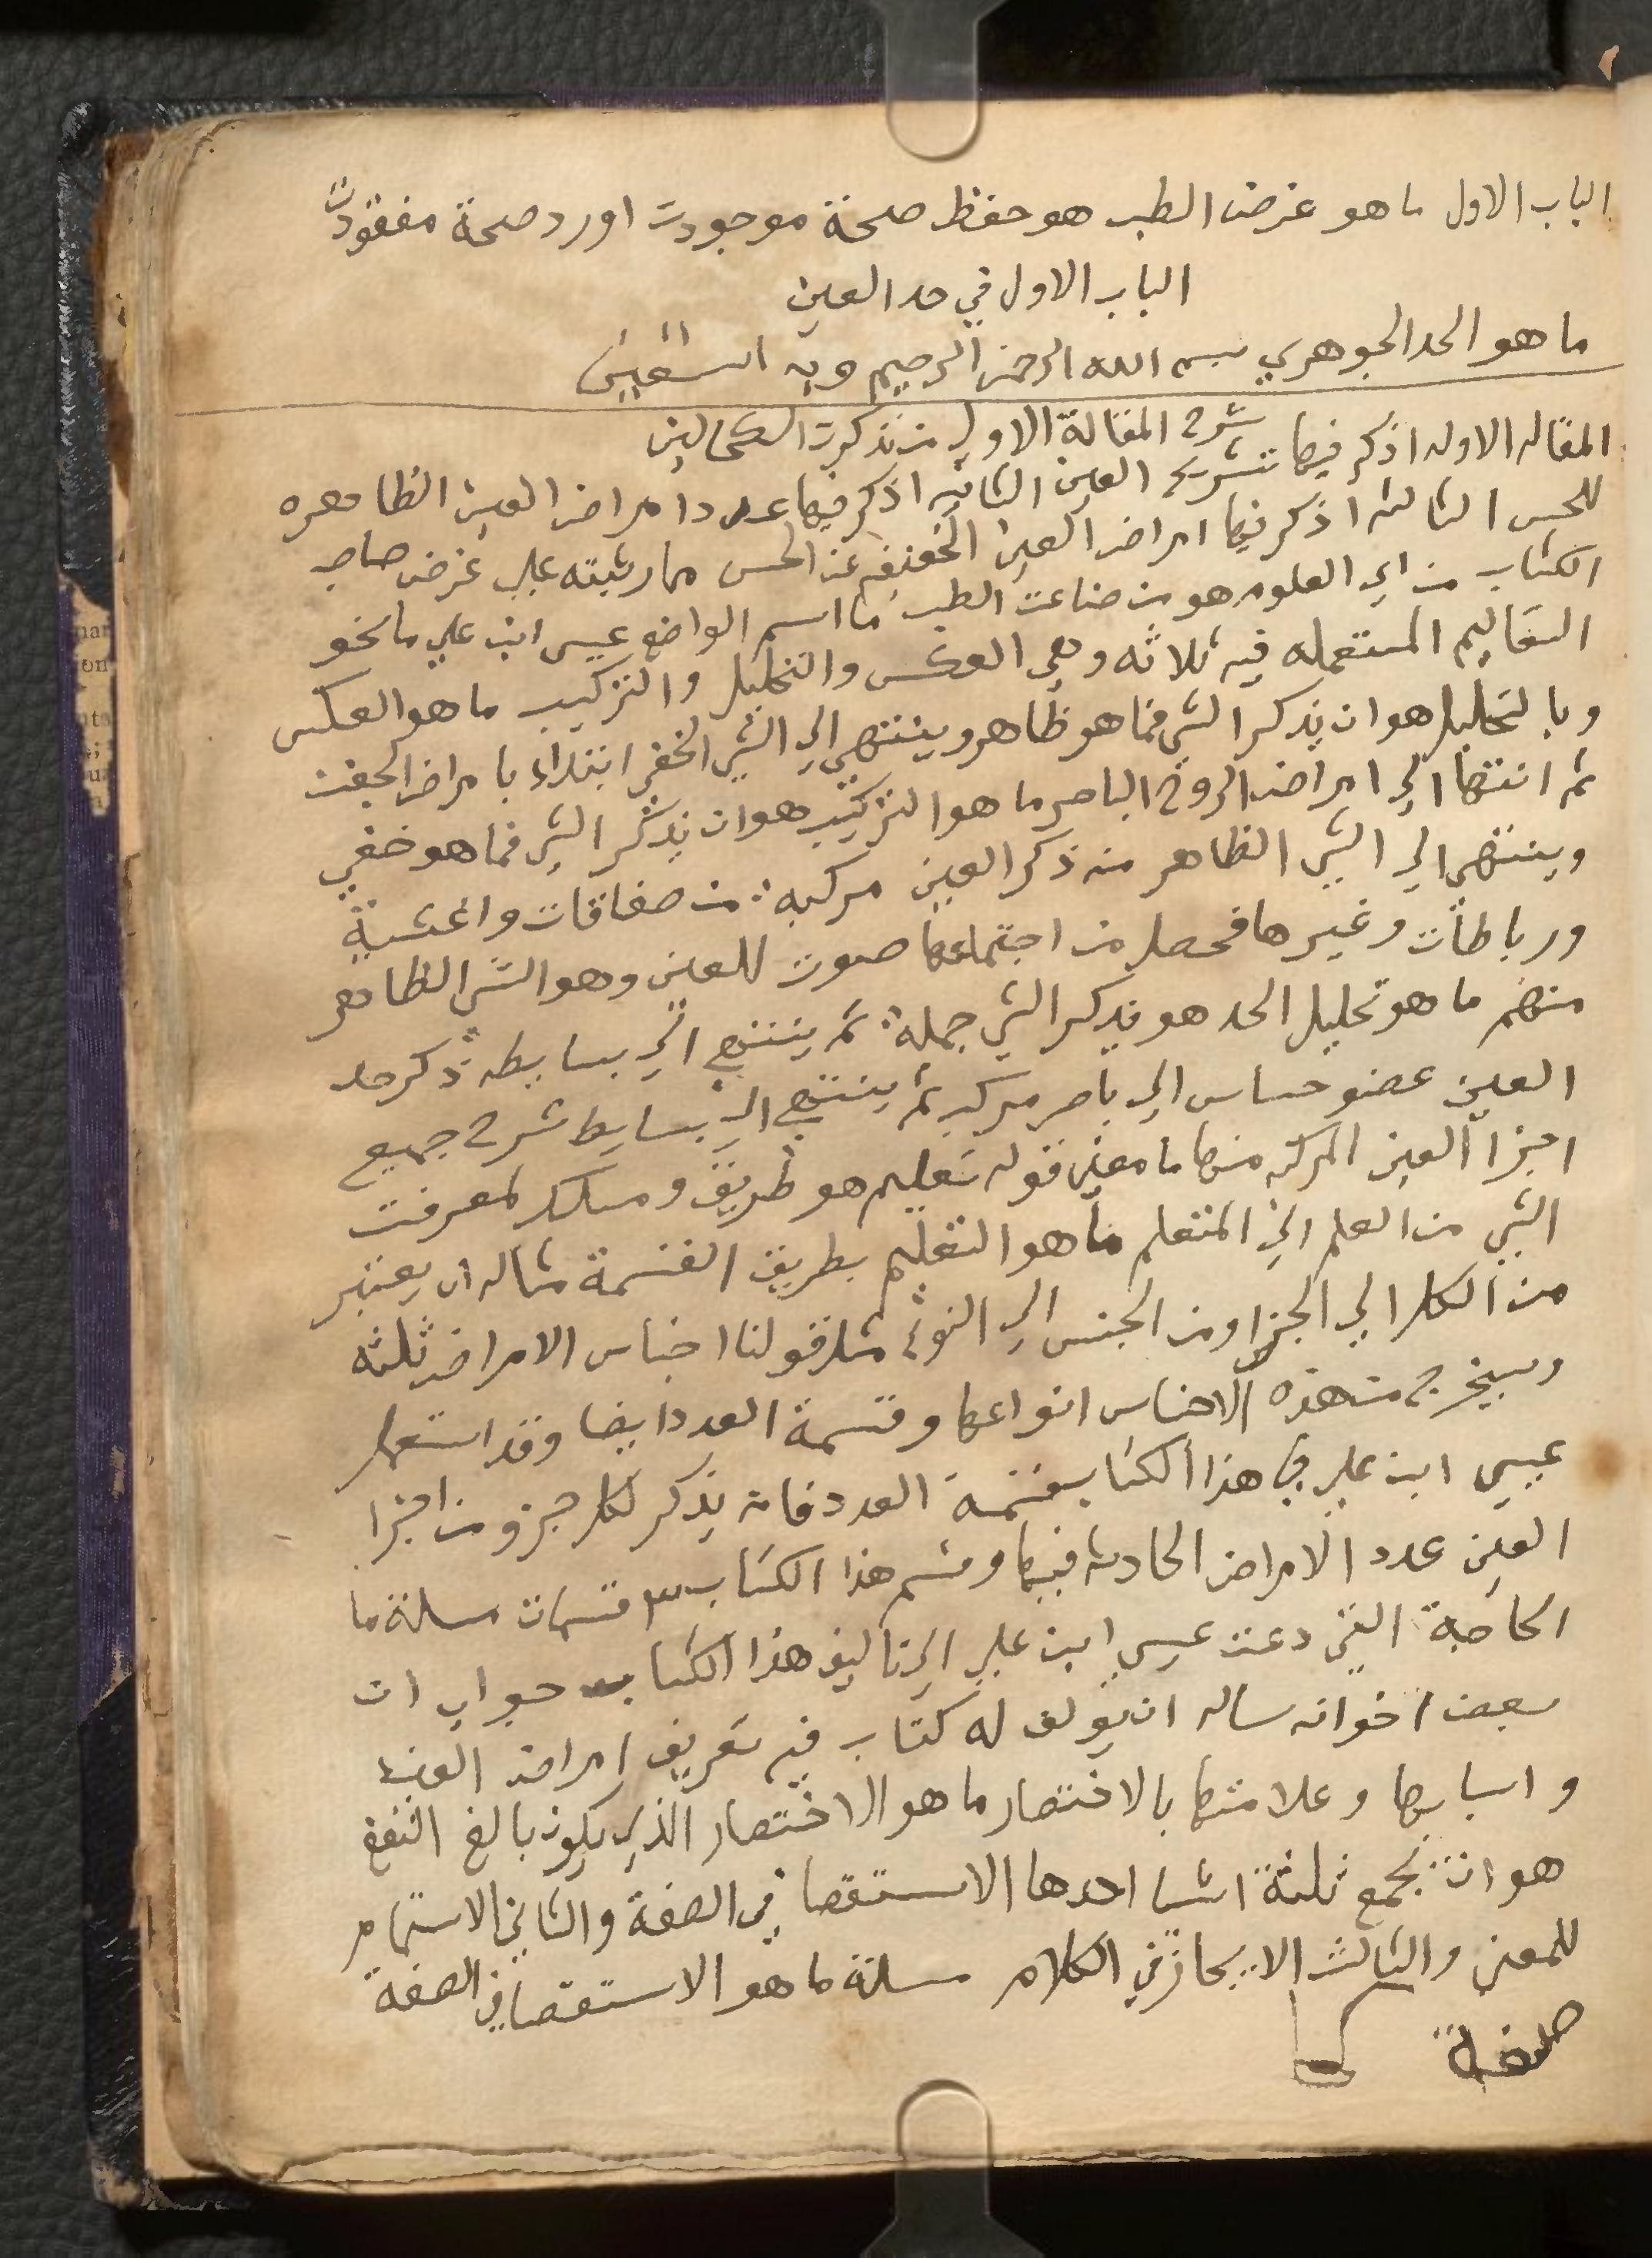 الباب الاول ما هو غرض الطب هو حفظ صحة موجودت او رد صحة مفقودت
الباب الاول في حد العين
ما هو الحد الجوهري بسم الله الرحمن الرحيم وبه استعين
شرح المقالة الاولي من تذكرت الكحالين
المقاله الاوله اذكر فيها تشريح العين الثانيه اذكر فيها عدد امراض العين الظاهره
للحس الثالثه اذكر فيها امراض العين الخفيفه عن الحس مارتبته علي غرض صاحب
الكتاب من اي العلوم هو من صناعت الطب ما اسم الواضع عيسى ابن علي ما نحو
التعاليم المستعمله فيه ثلاثه وهي العكس والتحليل والتركيب ما هو العكس
وبالتحليل هو ان يذكر الشي فما هو ظاهر وينتهي الي الشي الخفي ابتداء بامراض الجفن
ثم انتها الي امراض الروح الباصر ما هو التركيب هو ان يذكر الشي فما هو خفي
وينتهي الي الشي الظاهر منه ذكر العين مركبه من صفاقات واغشية
ورباطات وغيرها فحصل من اجتماعها صوت للعين وهو الشي الظاهر
منهم ما هو تحليل الحد هو يذكر الشي جملة ثم ينتهي الي بسايطه ذكر حد
العين عضو حساس الي باصر مركب ثم ينتهي الي بسايط شرح جميع
اجزا العين المركبه منها ما معني قوله تعليم هو طريق ومسلك لمعرفت
الشي من العلم الي المتعلم ما هو التعليم بطريق القسمة مثاله ان يعتبر
من الكل الي الجزا ومن الجنس الي النوع مثل قولنا اجناس الامراض ثلثه
وسيخرج من هذه الاجناس انواعها وقسمة العدد ايضا وقد استعمل
عيسي ابن علي في هذا الكتاب قسمة العدد فانه يذكر لكل جزو من اجزا
العين عدد الامراض الحادثه فيها وقسم هذا الكتاب ٣ قسمات مسلة ما
الحاجة التي دعت عيسي ابن علي الي تاليف هذا الكتاب جواب ان
بعض اخوانه ساله ان يولف له كتاب فيه تعريف امراض العين
واسبابها وعلامتها بالاختصار ما هو الاختصار الذي يكون بالغ النفع
هو ان يجمع ثلثة اشيا احدها الاستقصا في الصفة والثاني الاستتمام
للمعني والثالث الايجاز في الكلام مسلة ما هو الاستقصا في الصفة